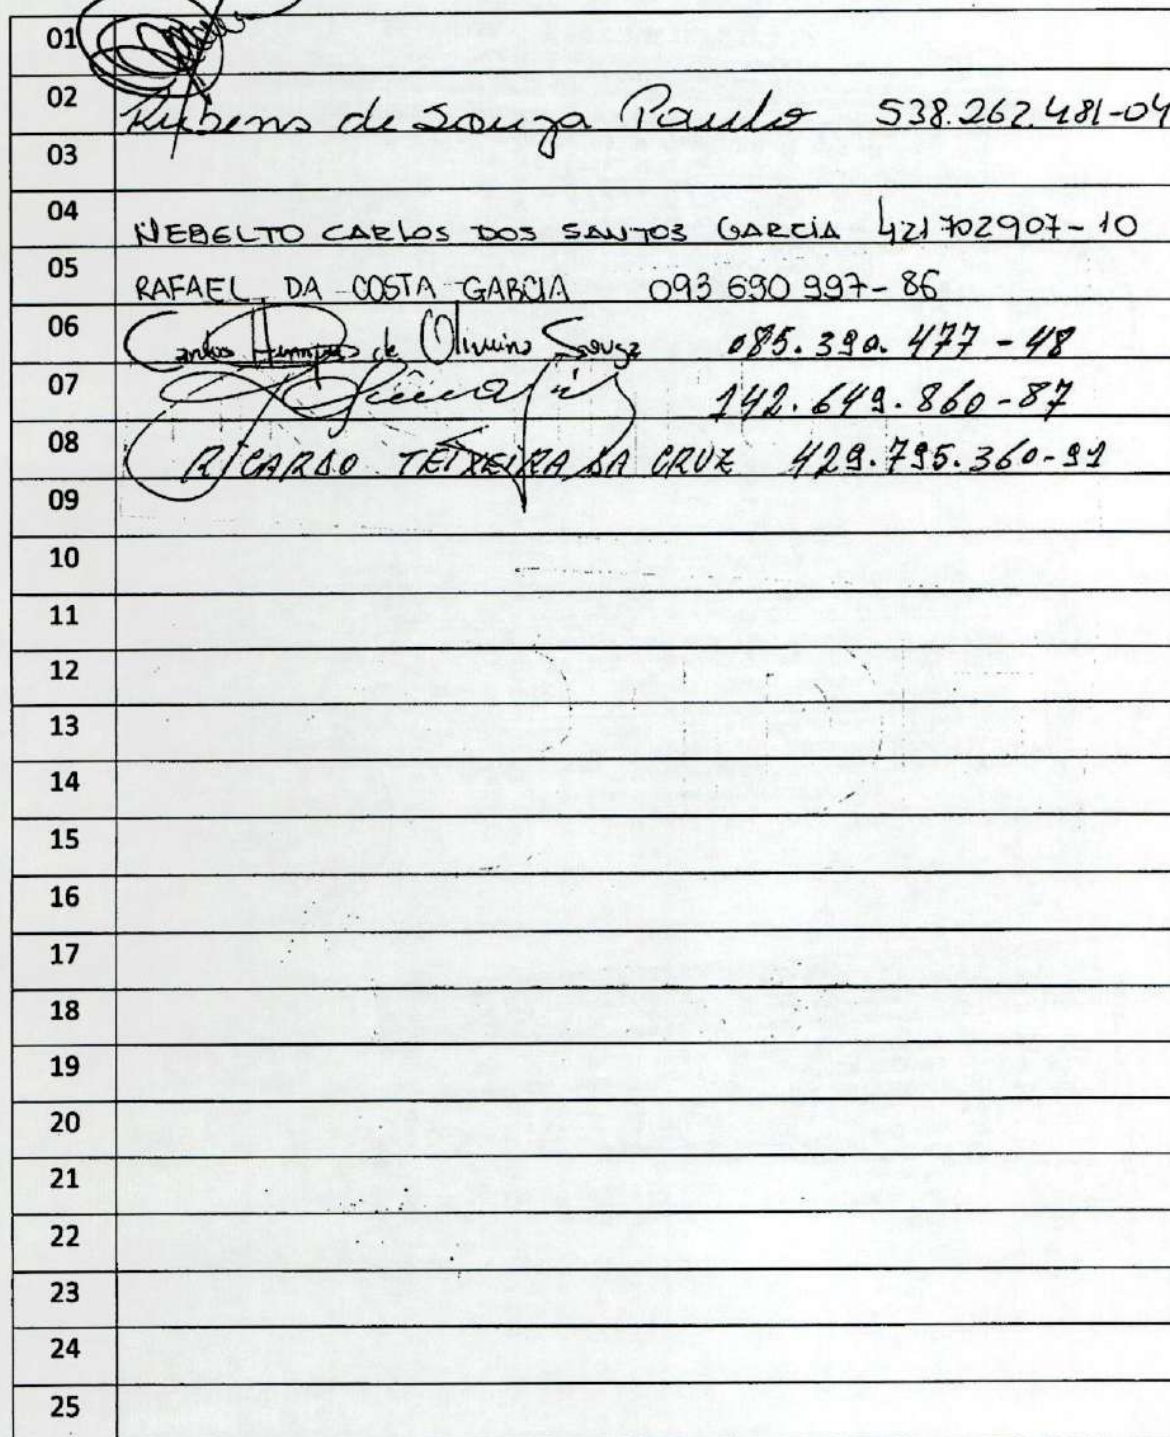 01
02 Rubens de Souza Paulo 538.262.481-04
03
04 NEBELTO CARLOS DOS SANTOS GARCIA 421702907-10
05 RAFAEL DA COSTA GARCIA 093 690 997-86
06 Carlos Henrique de Oliveira Souza 085.390.477-48
07 142.649.860-87
08 RICARDO TEIXEIRA DA CRUZ 429.795.360-91
09
10
11
12
13
14
15
16
17
18
19
20
21
22
23
24
25